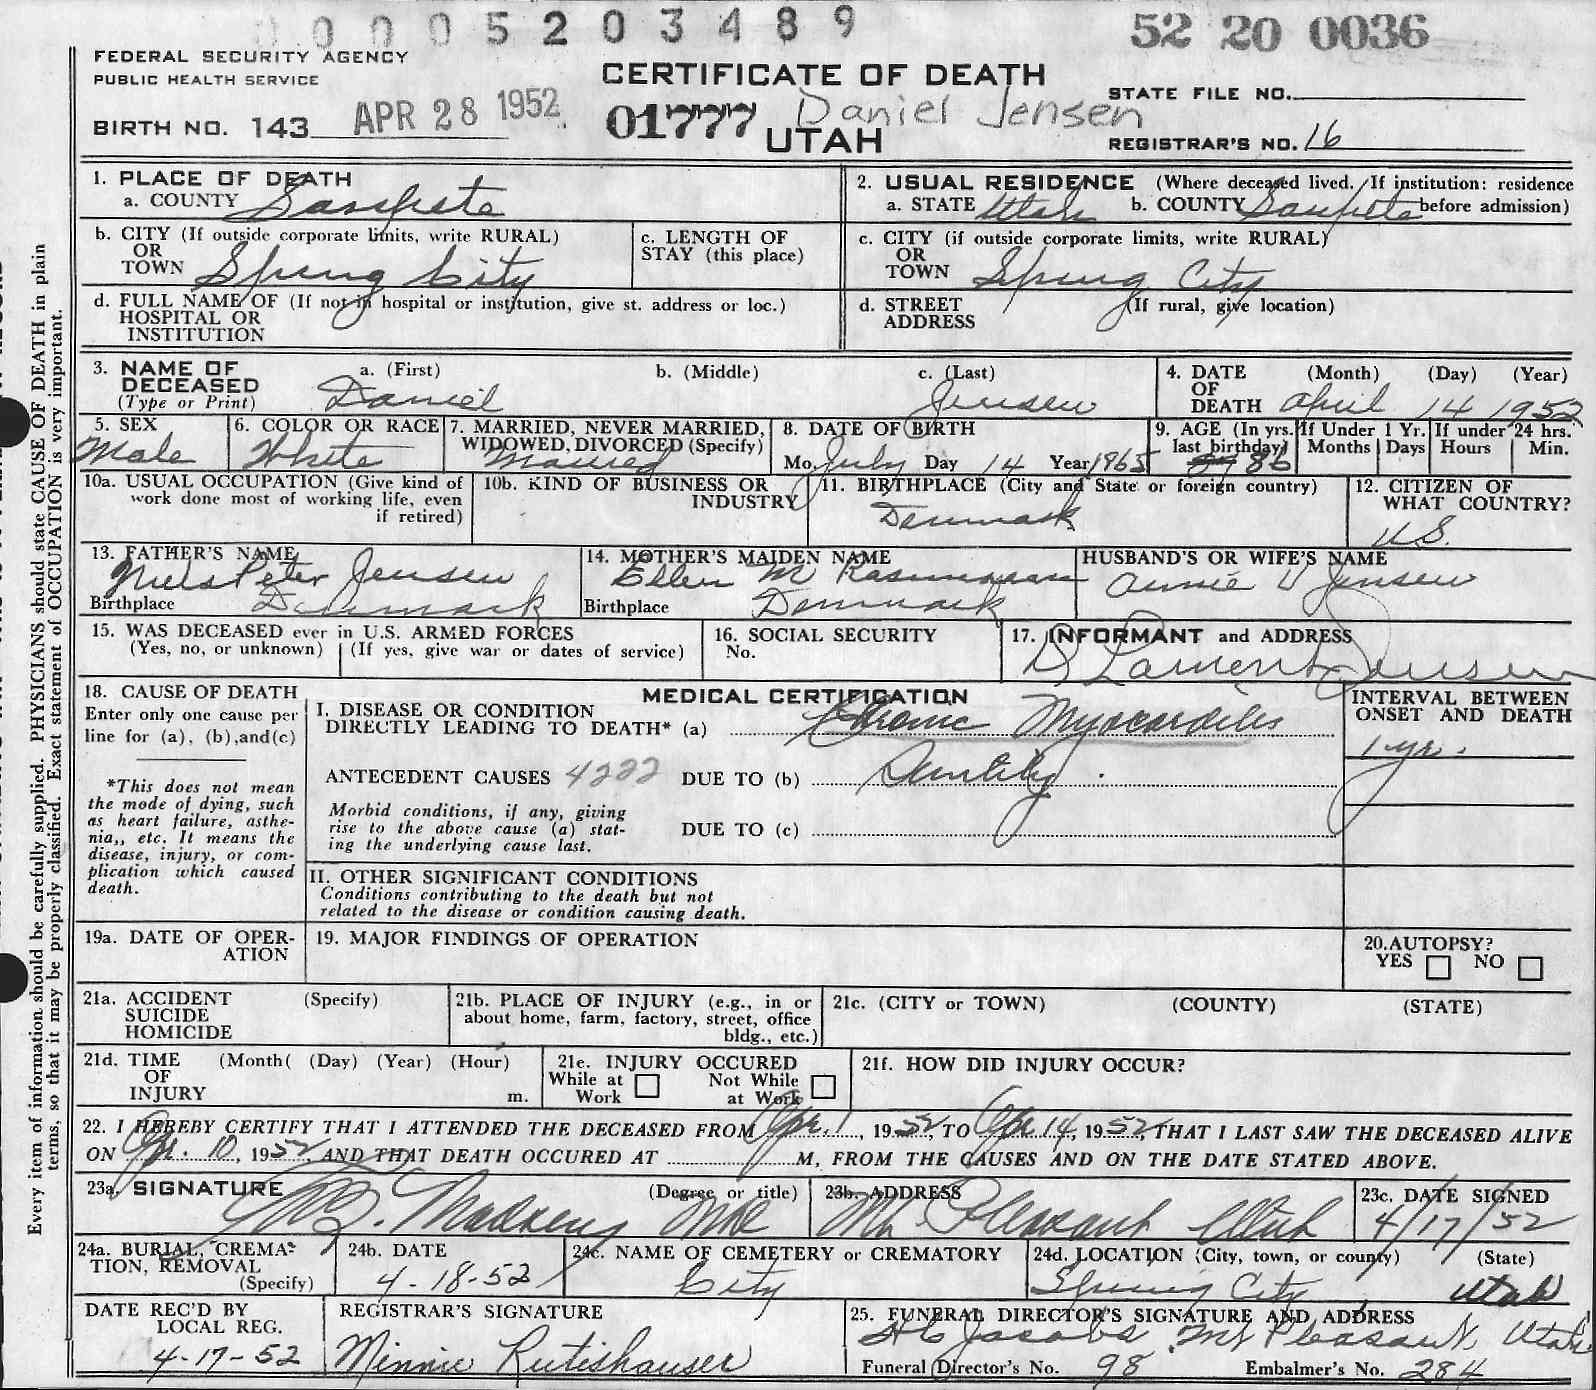 00005203489
52 20 0036
FEDERAL SECURITY AGENCY
PUBLIC HEALTH SERVICE
CERTIFICATE OF DEATH
STATE FILE NO.
BIRTH NO. 143 APR 28 1952
01777 Daniel Jensen
UTAH
REGISTRAR'S NO. 16
Every item of information should be carefully supplied. PHYSICIANS should state CAUSE OF DEATH in plain
terms, so that it may be properly classified. Exact statement of OCCUPATION is very important.
1. PLACE OF DEATH
a. COUNTY Sanpete
2. USUAL RESIDENCE (Where deceased lived. If institution: residence
a. STATE Utah b. COUNTY Sanpete before admission)
b. CITY (If outside corporate limits, write RURAL)
OR
TOWN Spring City
c. LENGTH OF
STAY (this place)
c. CITY (if outside corporate limits, write RURAL)
OR
TOWN Spring City
d. FULL NAME OF (If not in hospital or institution, give st. address or loc.)
HOSPITAL OR
INSTITUTION
d. STREET (If rural, give location)
ADDRESS
3. NAME OF
DECEASED
(Type or Print)
a. (First) b. (Middle) c. (Last)
Daniel Jensen
4. DATE (Month) (Day) (Year)
OF
DEATH April 14 1952
5. SEX
Male
6. COLOR OR RACE
White
7. MARRIED, NEVER MARRIED,
WIDOWED, DIVORCED (Specify)
Married
8. DATE OF BIRTH
Mo. July Day 14 Year 1865
9. AGE (In yrs.
last birthday)
86
If Under 1 Yr.
Months Days
If under 24 hrs.
Hours Min.
10a. USUAL OCCUPATION (Give kind of
work done most of working life, even
if retired)
10b. KIND OF BUSINESS OR
INDUSTRY
11. BIRTHPLACE (City and State or foreign country)
Denmark
12. CITIZEN OF
WHAT COUNTRY?
U.S.
13. FATHER'S NAME
Niels Peter Jensen
Birthplace Denmark
14. MOTHER'S MAIDEN NAME
Ellen M Rasmussen
Birthplace Denmark
HUSBAND'S OR WIFE'S NAME
Annie V Jensen
15. WAS DECEASED ever in U.S. ARMED FORCES
(Yes, no, or unknown) (If yes, give war or dates of service)
16. SOCIAL SECURITY
No.
17. INFORMANT and ADDRESS
D Lamont Jensen
18. CAUSE OF DEATH
Enter only one cause per
line for (a), (b),and(c)
*This does not mean
the mode of dying, such
as heart failure, asthe-
nia,, etc. It means the
disease, injury, or com-
plication which caused
death.
MEDICAL CERTIFICATION
I. DISEASE OR CONDITION
DIRECTLY LEADING TO DEATH* (a) Chronic Myocarditis
ANTECEDENT CAUSES 4222 DUE TO (b) Senility
Morbid conditions, if any, giving
rise to the above cause (a) stat-
ing the underlying cause last.
DUE TO (c)
INTERVAL BETWEEN
ONSET AND DEATH
1 yr.
II. OTHER SIGNIFICANT CONDITIONS
Conditions contributing to the death but not
related to the disease or condition causing death.
19a. DATE OF OPER-
ATION
19. MAJOR FINDINGS OF OPERATION
20.AUTOPSY?
YES NO
21a. ACCIDENT (Specify)
SUICIDE
HOMICIDE
21b. PLACE OF INJURY (e.g., in or
about home, farm, factory, street, office
bldg., etc.)
21c. (CITY or TOWN) (COUNTY) (STATE)
21d. TIME (Month( (Day) (Year) (Hour)
OF
INJURY m.
21e. INJURY OCCURED
While at Not While
Work at Work
21f. HOW DID INJURY OCCUR?
22. I HEREBY CERTIFY THAT I ATTENDED THE DECEASED FROM Apr. 1, 1952, TO Apr 14, 1952, THAT I LAST SAW THE DECEASED ALIVE
ON Apr. 10, 1952, AND THAT DEATH OCCURED AT M, FROM THE CAUSES AND ON THE DATE STATED ABOVE.
23a. SIGNATURE (Degree or title)
Madsen MD
23b. ADDRESS
Mt. Pleasant Utah
23c. DATE SIGNED
4/17/52
24a. BURIAL, CREMA-
TION, REMOVAL
(Specify)
24b. DATE
4-18-52
24c. NAME OF CEMETERY or CREMATORY
City
24d. LOCATION (City, town, or county) (State)
Spring City Utah
DATE REC'D BY
LOCAL REG.
4-17-52
REGISTRAR'S SIGNATURE
Minnie Rutishauser
25. FUNERAL DIRECTOR'S SIGNATURE AND ADDRESS
H C Jacobs Mt Pleasant, Utah
Funeral Director's No. 98 Embalmer's No. 284